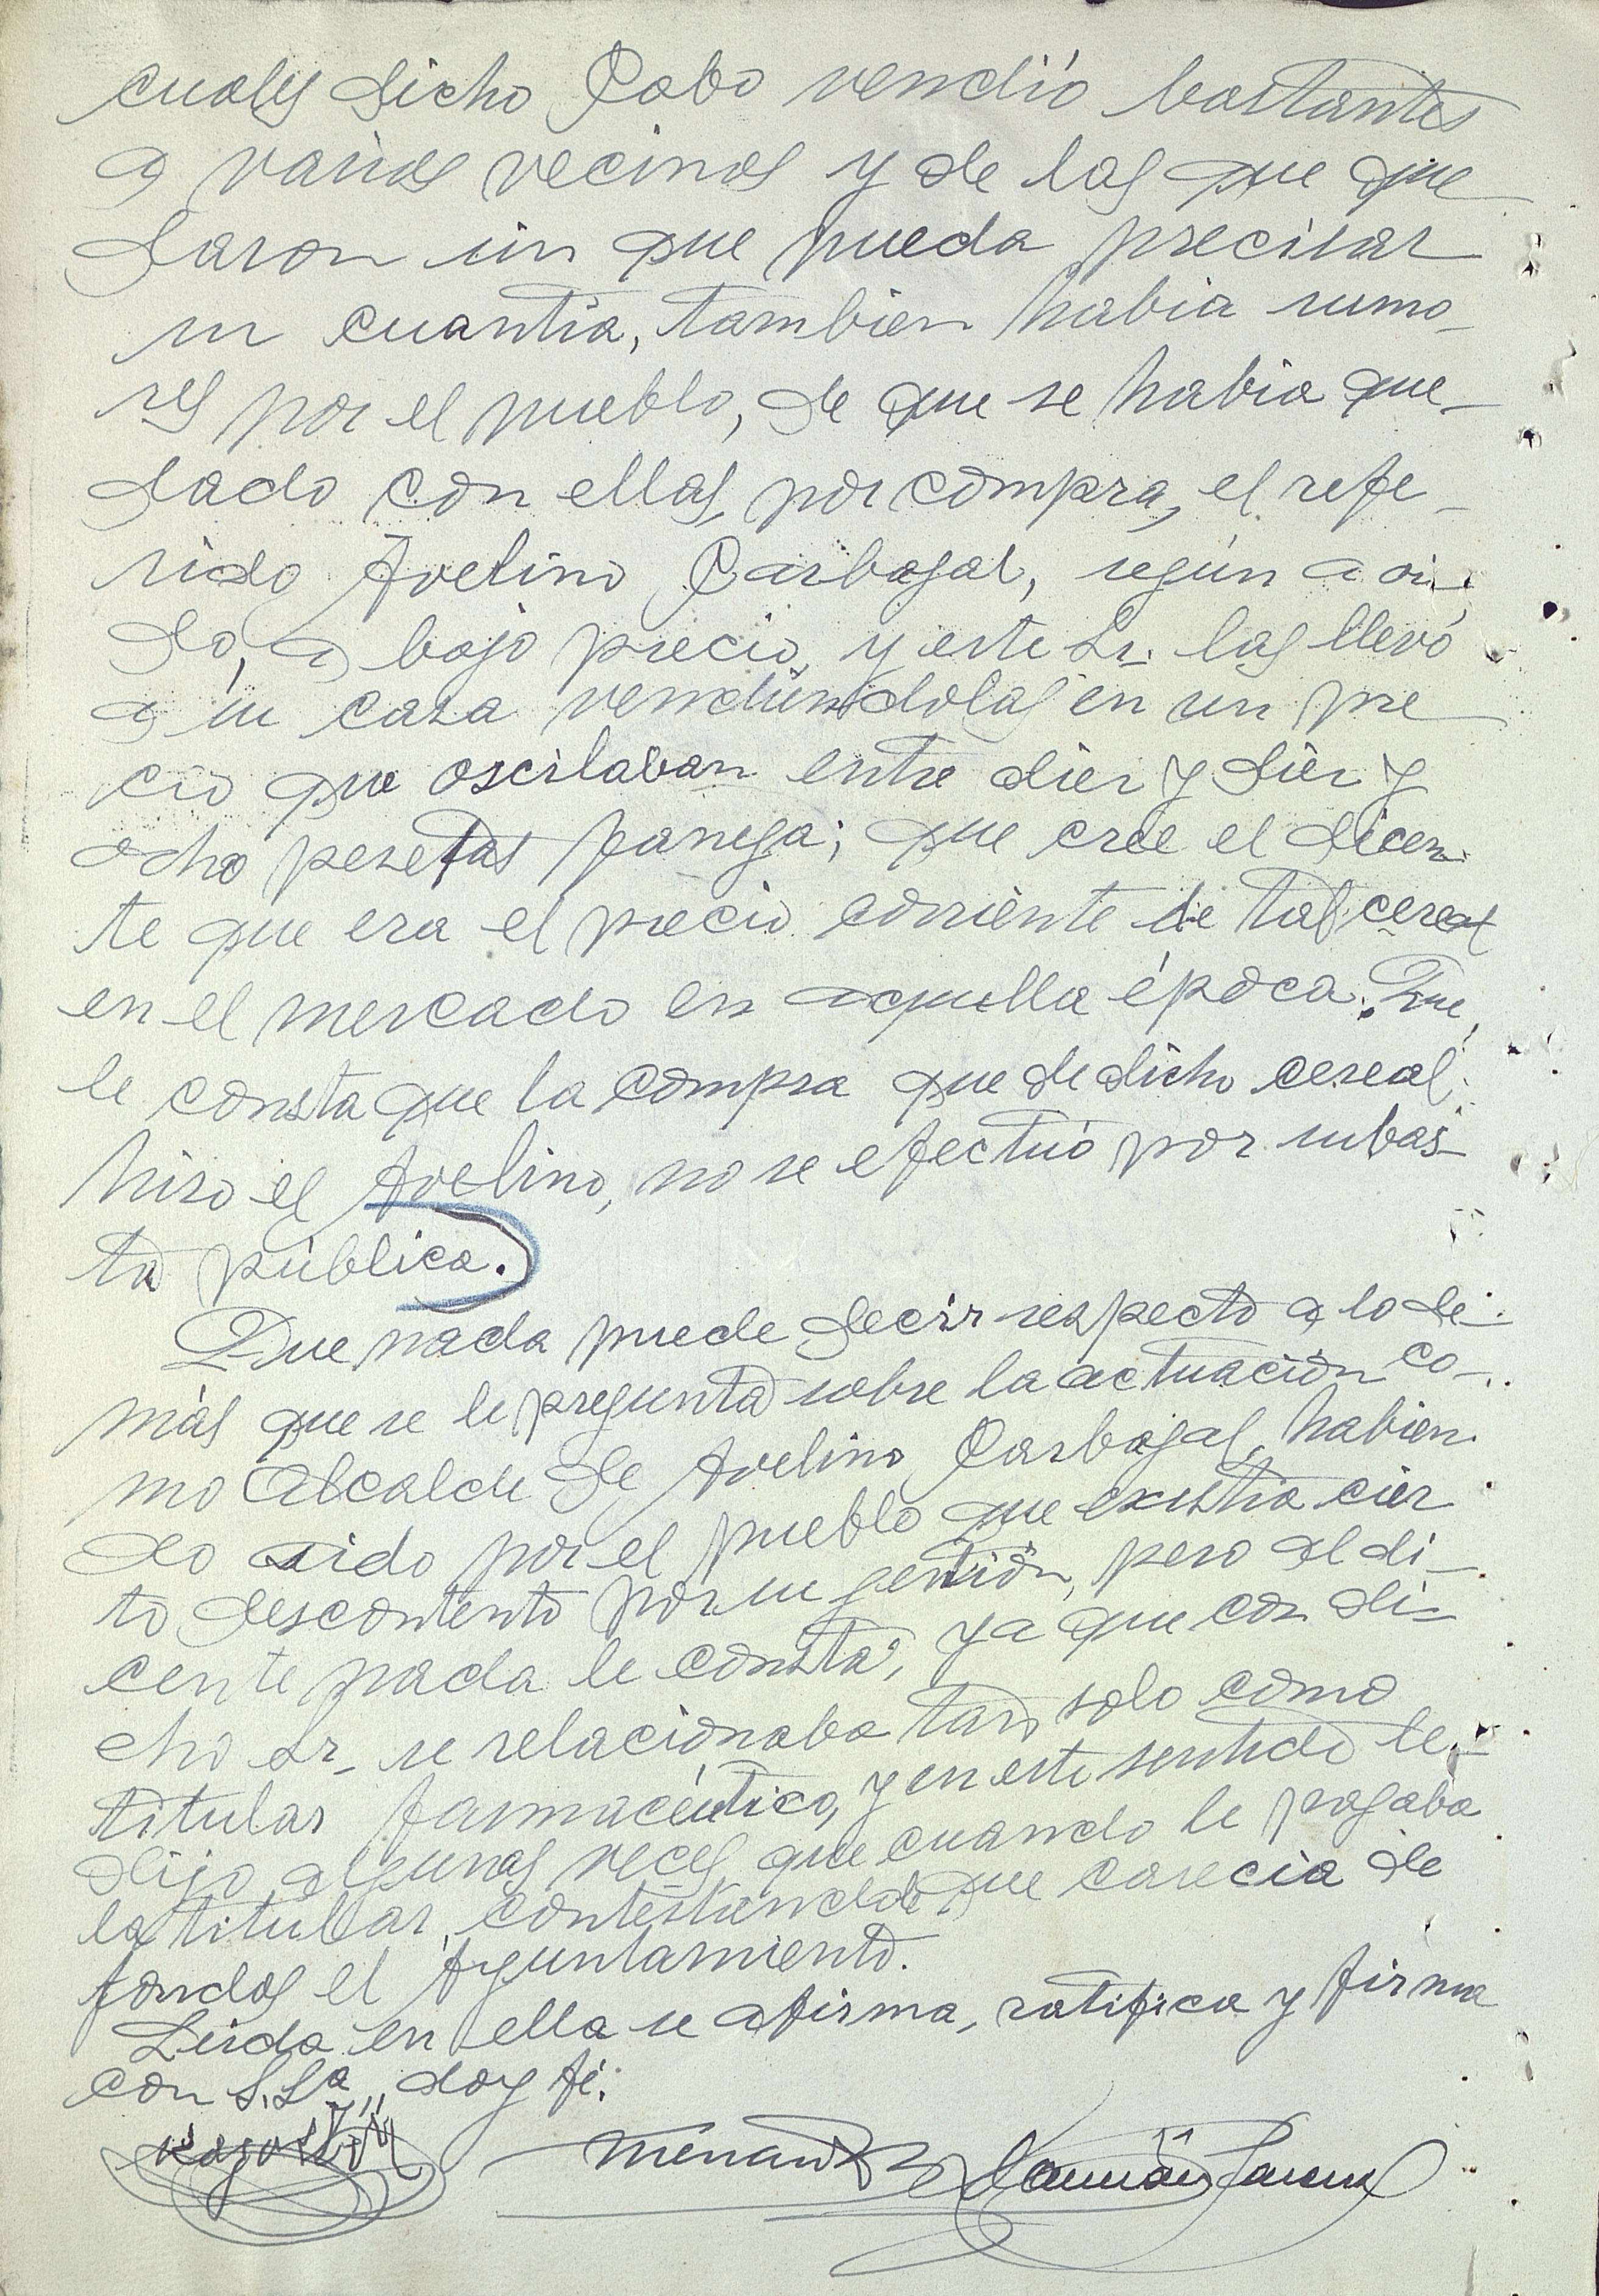 cuales dicho Cabo vendió bastantes
a varios vecinos y de las que que
daron sin que pueda precisar
su cuantia, tambien habia rumo-
res por el pueblo, de que se habia que-
dado con ellas, por compra, el refe-
rido Avelino Carbajal, según a oi-
do, a bajo precio, y este Sr. las llevó
a su casa vendiendolas en un pre
cio que oscilaban entre diez y diez y
ocho pesetas fanega; que cree el dicen-
te que era el precio corriente de tal cereal
en el mercado en aquella época. Que
le consta que la compra que de dicho cereal
hizo el Avelino, no se efectuó por subas-
ta pública.
Que nada puede decir respecto a lo de-
más que se le pregunta sobre la actuación co-
mo Alcalde de Avelino Carbajal, habien
do oido por el pueblo que existia cier
to descontento por su gestión, pero al di-
cente nada le consta, ya que con di-
cho Sr. se relacionaba tan solo como
titular farmacéutico, y en este sentido le
dijo algunas veces que cuando le pagaba
la titular, contestandole que carecia de
fondos el Ayuntamiento.
Leida en ella se afirma, ratifica y firma
con S.Sª,, doy fé.